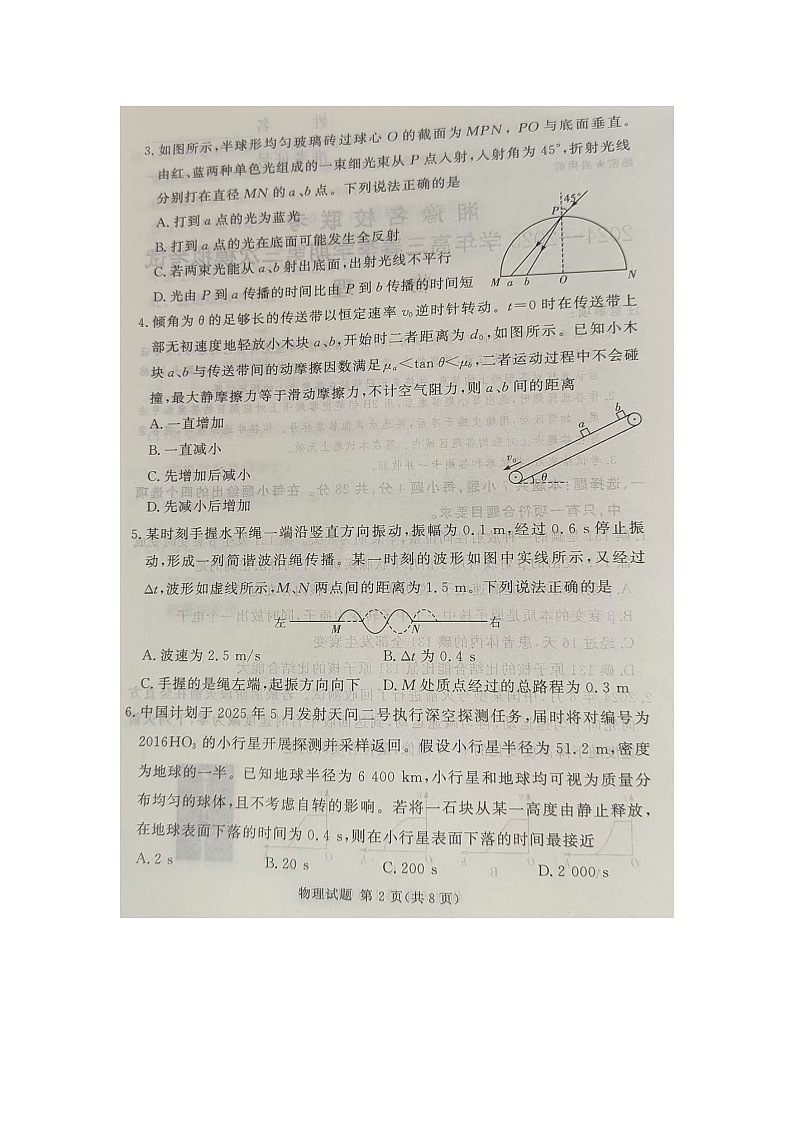 3. 如图所示,半球形均匀玻璃砖过球心 O 的截面为 MPN，PO 与底面垂直。
由红、蓝两种单色光组成的一束细光束从 P 点入射,入射角为 45°,折射光线
分别打在直径 MN 的 a、b 点。下列说法正确的是
A. 打到 a 点的光为蓝光
B. 打到 a 点的光在底面可能发生全反射
C. 若两束光能从 a、b 射出底面,出射光线不平行
D. 光由 P 到 a 传播的时间比由 P 到 b 传播的时间短
45°
P
M a b O N
4. 倾角为 θ 的足够长的传送带以恒定速率 v₀逆时针转动。t=0 时在传送带上
部无初速度地轻放小木块 a、b,开始时二者距离为 d₀,如图所示。已知小木
块 a、b 与传送带间的动摩擦因数满足 μₐ<tan θ<μ_b,二者运动过程中不会碰
撞,最大静摩擦力等于滑动摩擦力,不计空气阻力,则 a、b 间的距离
A. 一直增加
B. 一直减小
C. 先增加后减小
D. 先减小后增加
b
a
v₀
θ
5. 某时刻手握水平绳一端沿竖直方向振动,振幅为 0.1 m,经过 0.6 s 停止振
动,形成一列简谐波沿绳传播。某一时刻的波形如图中实线所示,又经过
Δt,波形如虚线所示,M、N 两点间的距离为 1.5 m。下列说法正确的是
左 M N 右
A. 波速为 2.5 m/s B. Δt 为 0.4 s
C. 手握的是绳左端,起振方向向下 D. M 处质点经过的总路程为 0.3 m
6. 中国计划于 2025 年 5 月发射天问二号执行深空探测任务,届时将对编号为
2016HO₃ 的小行星开展探测并采样返回。假设小行星半径为 51.2 m,密度
为地球的一半。已知地球半径为 6 400 km,小行星和地球均可视为质量分
布均匀的球体,且不考虑自转的影响。若将一石块从某一高度由静止释放,
在地球表面下落的时间为 0.4 s,则在小行星表面下落的时间最接近
A. 2 s B. 20 s C. 200 s D. 2 000 s
物理试题 第 2 页(共 8 页)